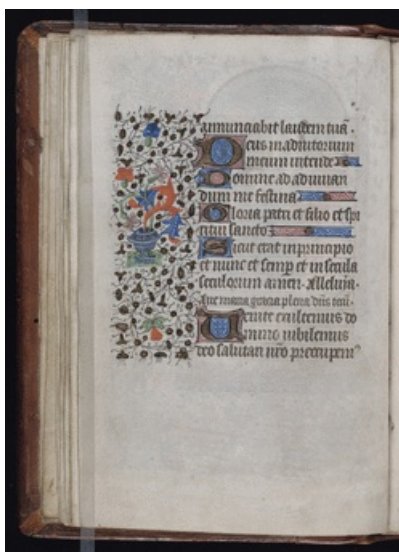 annunciabit laudem tuā.
Deus in adiutorium
meum intende
Domine ad adiuuan
dum me festina
Gloria patri et filio et spi
ritui sancto
Sicut erat in principio
et nunc et semp et in secula
seculorum amen. Alleluya.
Aue maria gracia plena dn̄s tecū.
Uenite exultemus do
mino iubilemus
deo salutari nr̄o preocupem